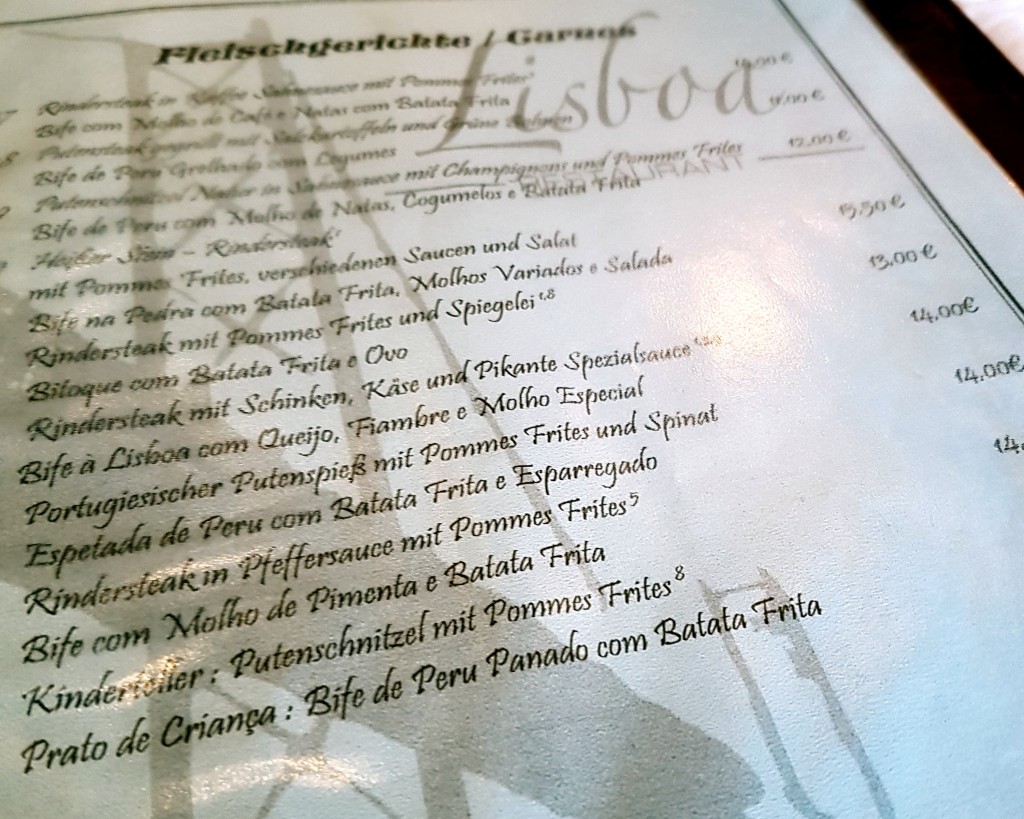 Fleischgerichte / Carnes
Lisboa
RESTAURANT
Rindersteak in Kaffee Sahnesauce mit Pommes Frites
Bife com Molho de Café e Natas com Batata Frita
Putensteak gegrillt mit Salzkartoffeln und Grüne Bohnen
Bife de Peru Grelhado com Legumes
Putenschnitzel Natur in Sahnesauce mit Champignons und Pommes Frites 12,00 €
Bife de Peru com Molho de Natas, Cogumelos e Batata Frita
Heißer Stein - Rindersteak
mit Pommes Frites, verschiedenen Saucen und Salat 15,50 €
Bife na Pedra com Batata Frita, Molhos Variados e Salada
Rindersteak mit Pommes Frites und Spiegelei 1,8 13,00 €
Bitoque com Batata Frita e Ovo
Rindersteak mit Schinken, Käse und Pikante Spezialsauce 14,00€
Bife à Lisboa com Queijo, Fiambre e Molho Especial
Portugiesischer Putenspieß mit Pommes Frites und Spinat 14,00€
Espetada de Peru com Batata Frita e Esparregado
Rindersteak in Pfeffersauce mit Pommes Frites 5 14,
Bife com Molho de Pimenta e Batata Frita
Kinderteller : Putenschnitzel mit Pommes Frites 8
Prato de Criança : Bife de Peru Panado com Batata Frita